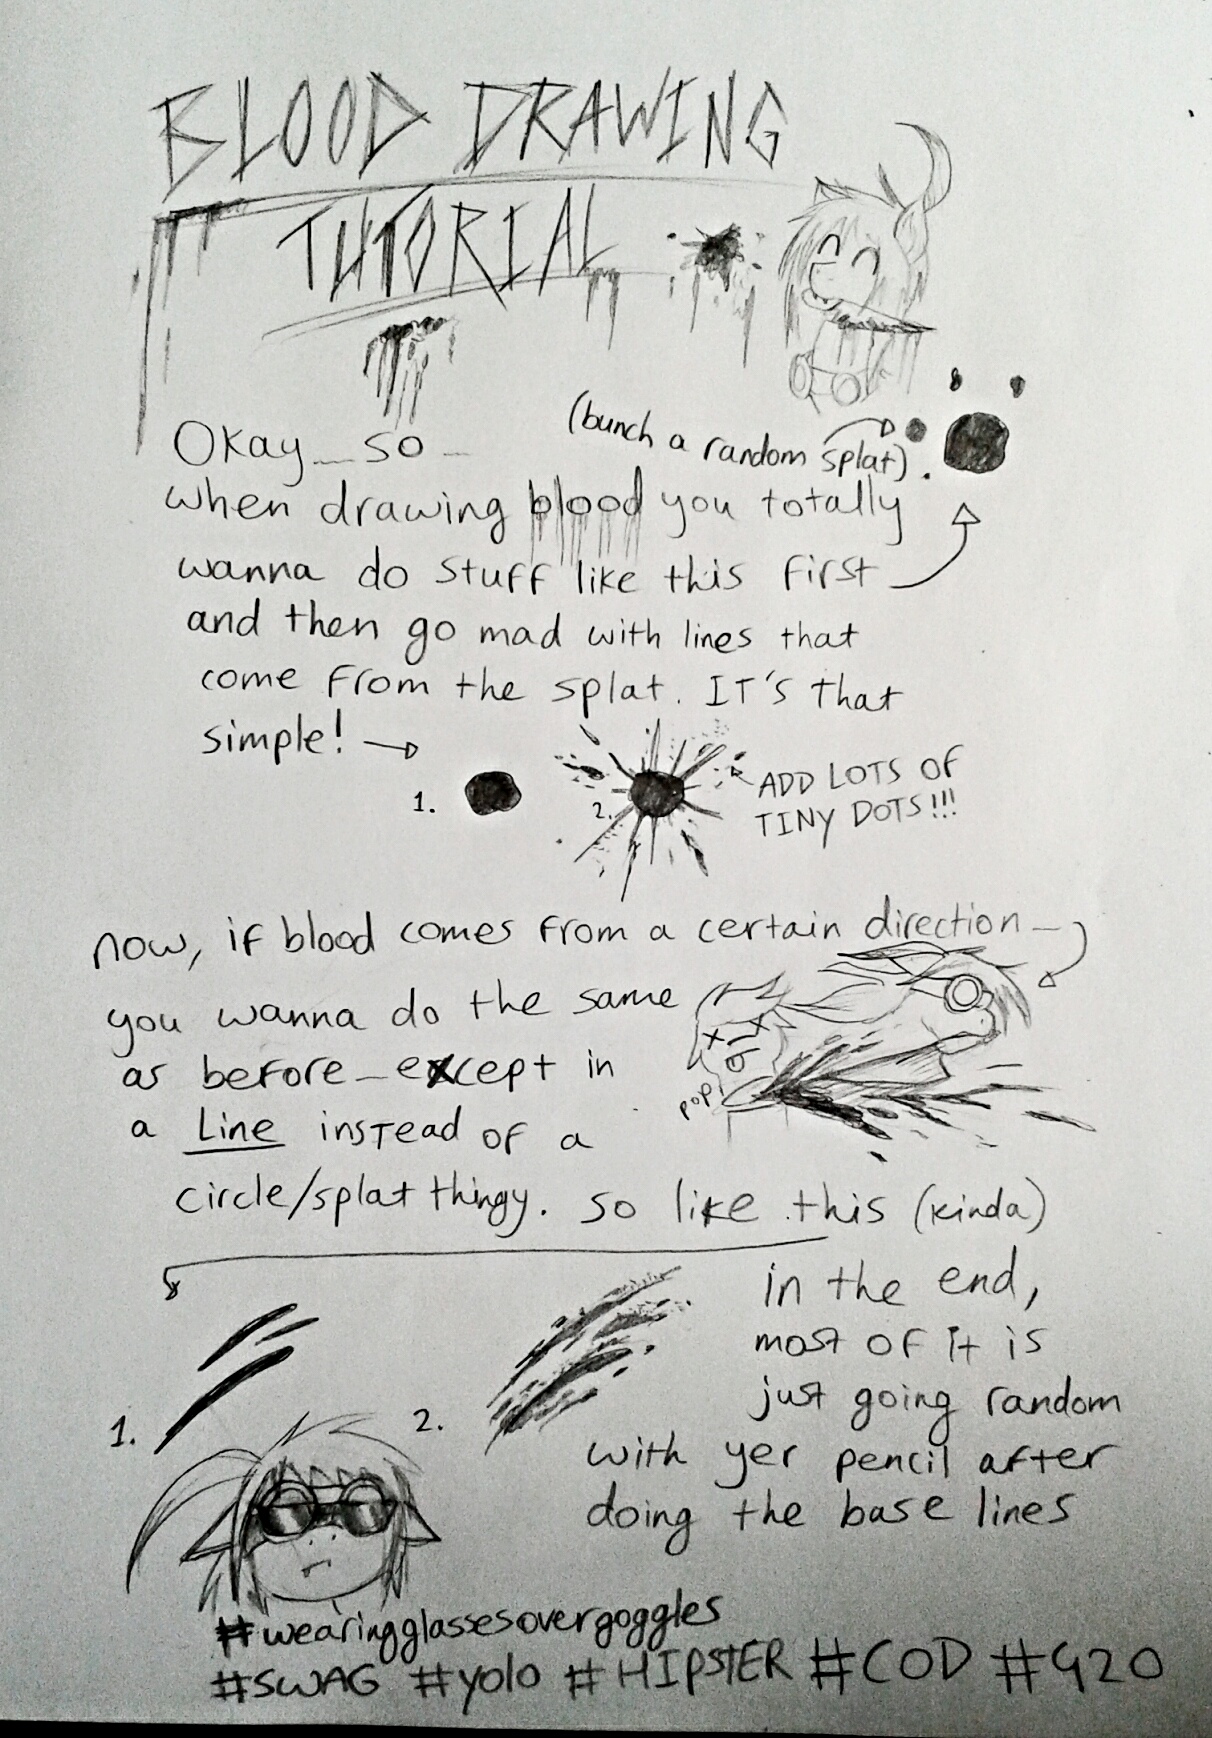 BLOOD DRAWING
TUTORIAL
Okay so
(bunch a random splat).
when drawing blood you totally
wanna do stuff like this first
and then go mad with lines that
come from the splat. IT'S that
simple!
1.
2.
ADD LOTS OF
TINY DOTS!!!
now, if blood comes from a certain direction
you wanna do the same
as before - except in
a Line instead of a
circle/splat thingy. so like this (kinda)
pop!
1.
2.
in the end,
most of it is
just going random
with yer pencil after
doing the base lines
#wearingglassesovergoggles
#SWAG #yolo #HIPSTER #COD #420